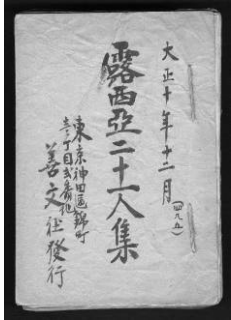 大正十年十二月
(四九五)
露西亞二十一人集
東京神田區錦町
壱丁目弐番地
善文社發行